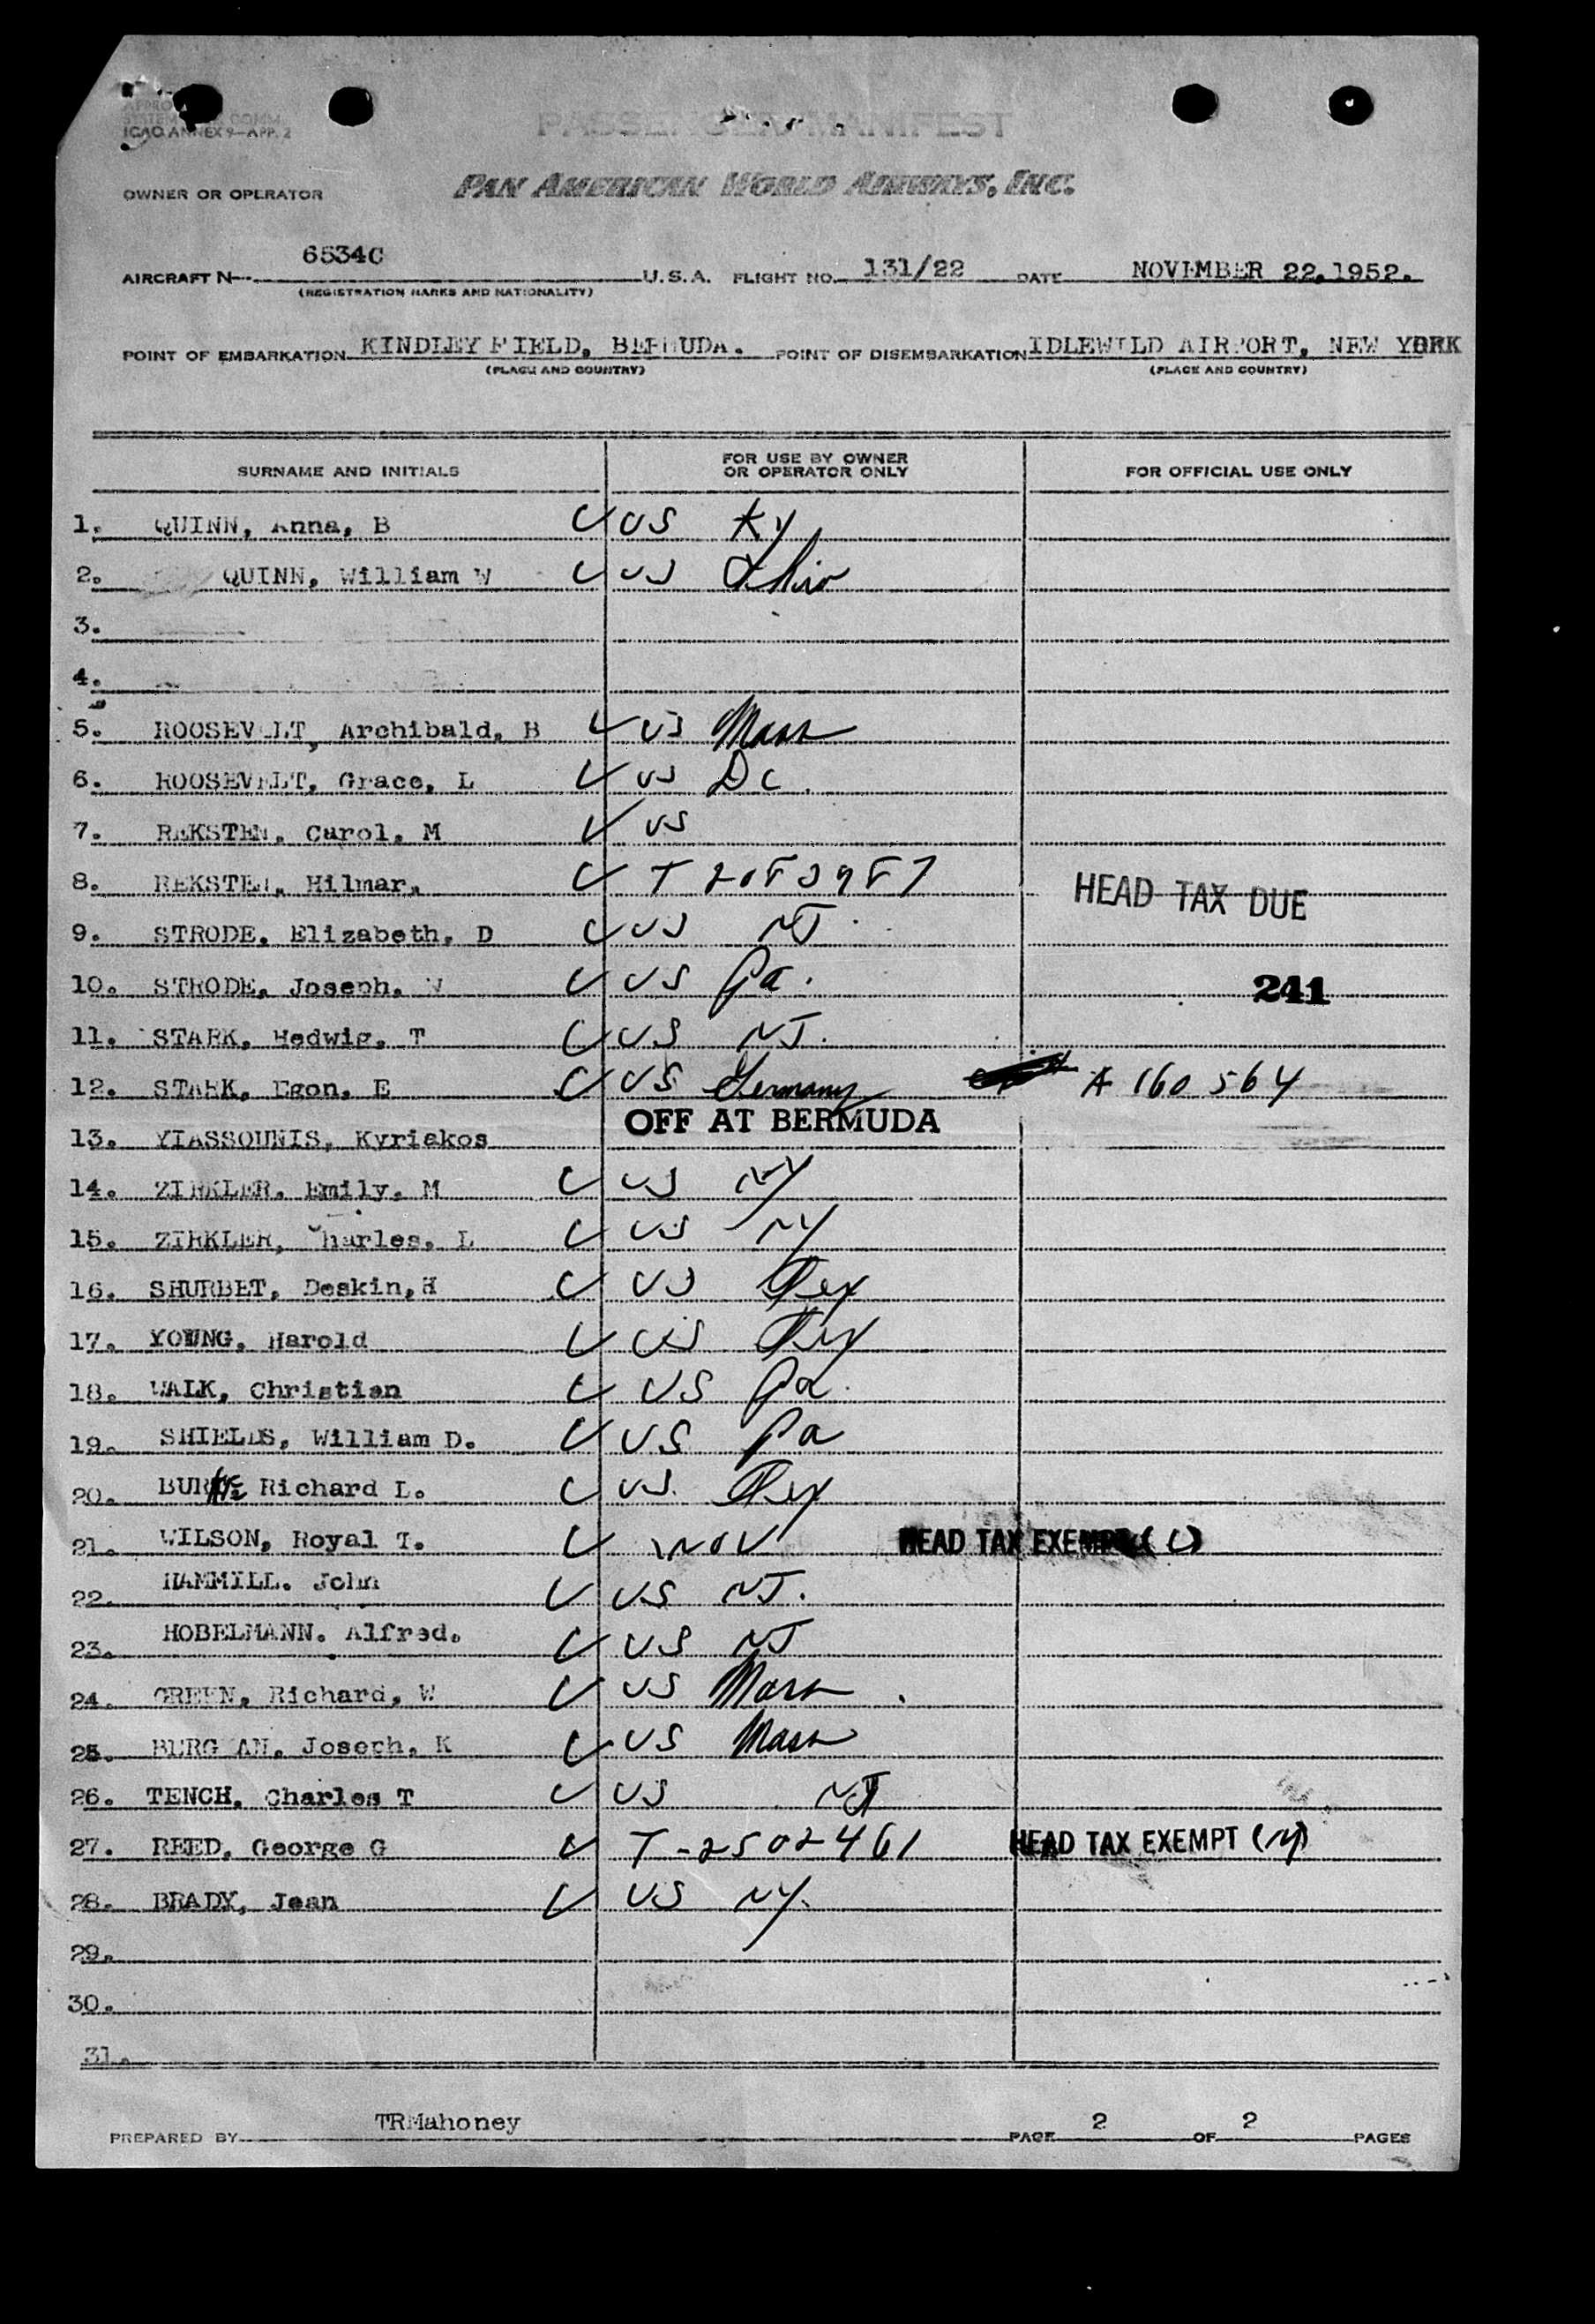 ICAO ANNEX 9—APP. 2
PASSENGER MANIFEST
OWNER OR OPERATOR PAN AMERICAN WORLD AIRWAYS, INC.
AIRCRAFT N 6534C U.S.A. FLIGHT NO. 131/22 DATE NOVEMBER 22, 1952.
(REGISTRATION MARKS AND NATIONALITY)
POINT OF EMBARKATION KINDLEY FIELD, BERMUDA. POINT OF DISEMBARKATION IDLEWILD AIRPORT, NEW YORK
(PLACE AND COUNTRY) (PLACE AND COUNTRY)
SURNAME AND INITIALS FOR USE BY OWNER OR OPERATOR ONLY FOR OFFICIAL USE ONLY
1. QUINN, Anna, B US Ky
2. QUINN, William W US Ohio
3.
4.
5. ROOSEVELT, Archibald, B US Mass
6. ROOSEVELT, Grace, L US DC.
7. REKSTEN, Carol, M US
8. REKSTEN, Hilmar, T HEAD TAX DUE
9. STRODE, Elizabeth, D US NJ.
10. STRODE, Joseph, W US Pa. 241
11. STARK, Hedwig, T US NJ.
12. STARK, Egon, E US Germany A 160 564
13. YIASSOUNIS, Kyriakos OFF AT BERMUDA
14. ZIRKLER, Emily, M US NY
15. ZIRKLER, Charles, L US NY
16. SHURBET, Deskin, H US Tex
17. YOUNG, Harold US Tex
18. WALK, Christian US Pa.
19. SHIELDS, William D. US Pa
20. BURKE Richard L. US Tex
21. WILSON, Royal T. HEAD TAX EXEMPT (C)
22. HAMMILL. John US NJ.
23. HOBELMANN. Alfred. US NJ
24. GREEN, Richard, W US Mass
25. BERGMAN, Joseph, K US Mass
26. TENCH, Charles T US NJ
27. REED, George G T-2502461 HEAD TAX EXEMPT
28. BRADY, Jean US NY.
29.
30.
31.
PREPARED BY TRMahoney PAGE 2 OF 2 PAGES